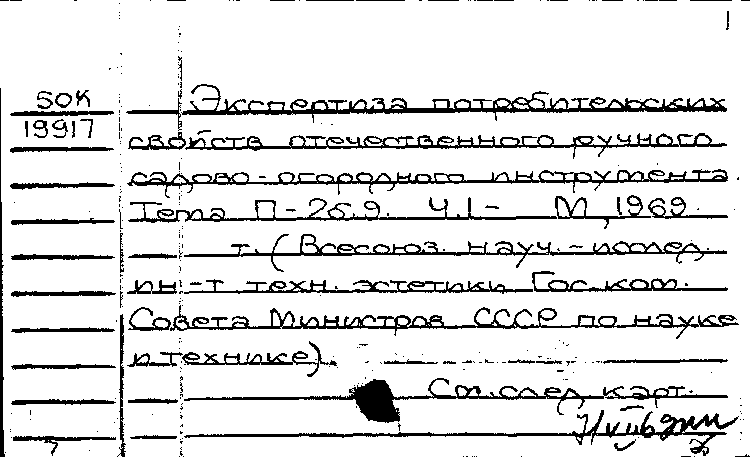 БОК
19917
Экспертиза потребительских
свойств отечественного ручного
садово-огородного инструмента.
Тема П-26.9. Ч.1- М., 1969.
т. (Всесоюз. науч.-исслед.
ин-т техн. эстетики Гос. ком.
Совета Министров СССР по науке
и технике).
См. след. карт.